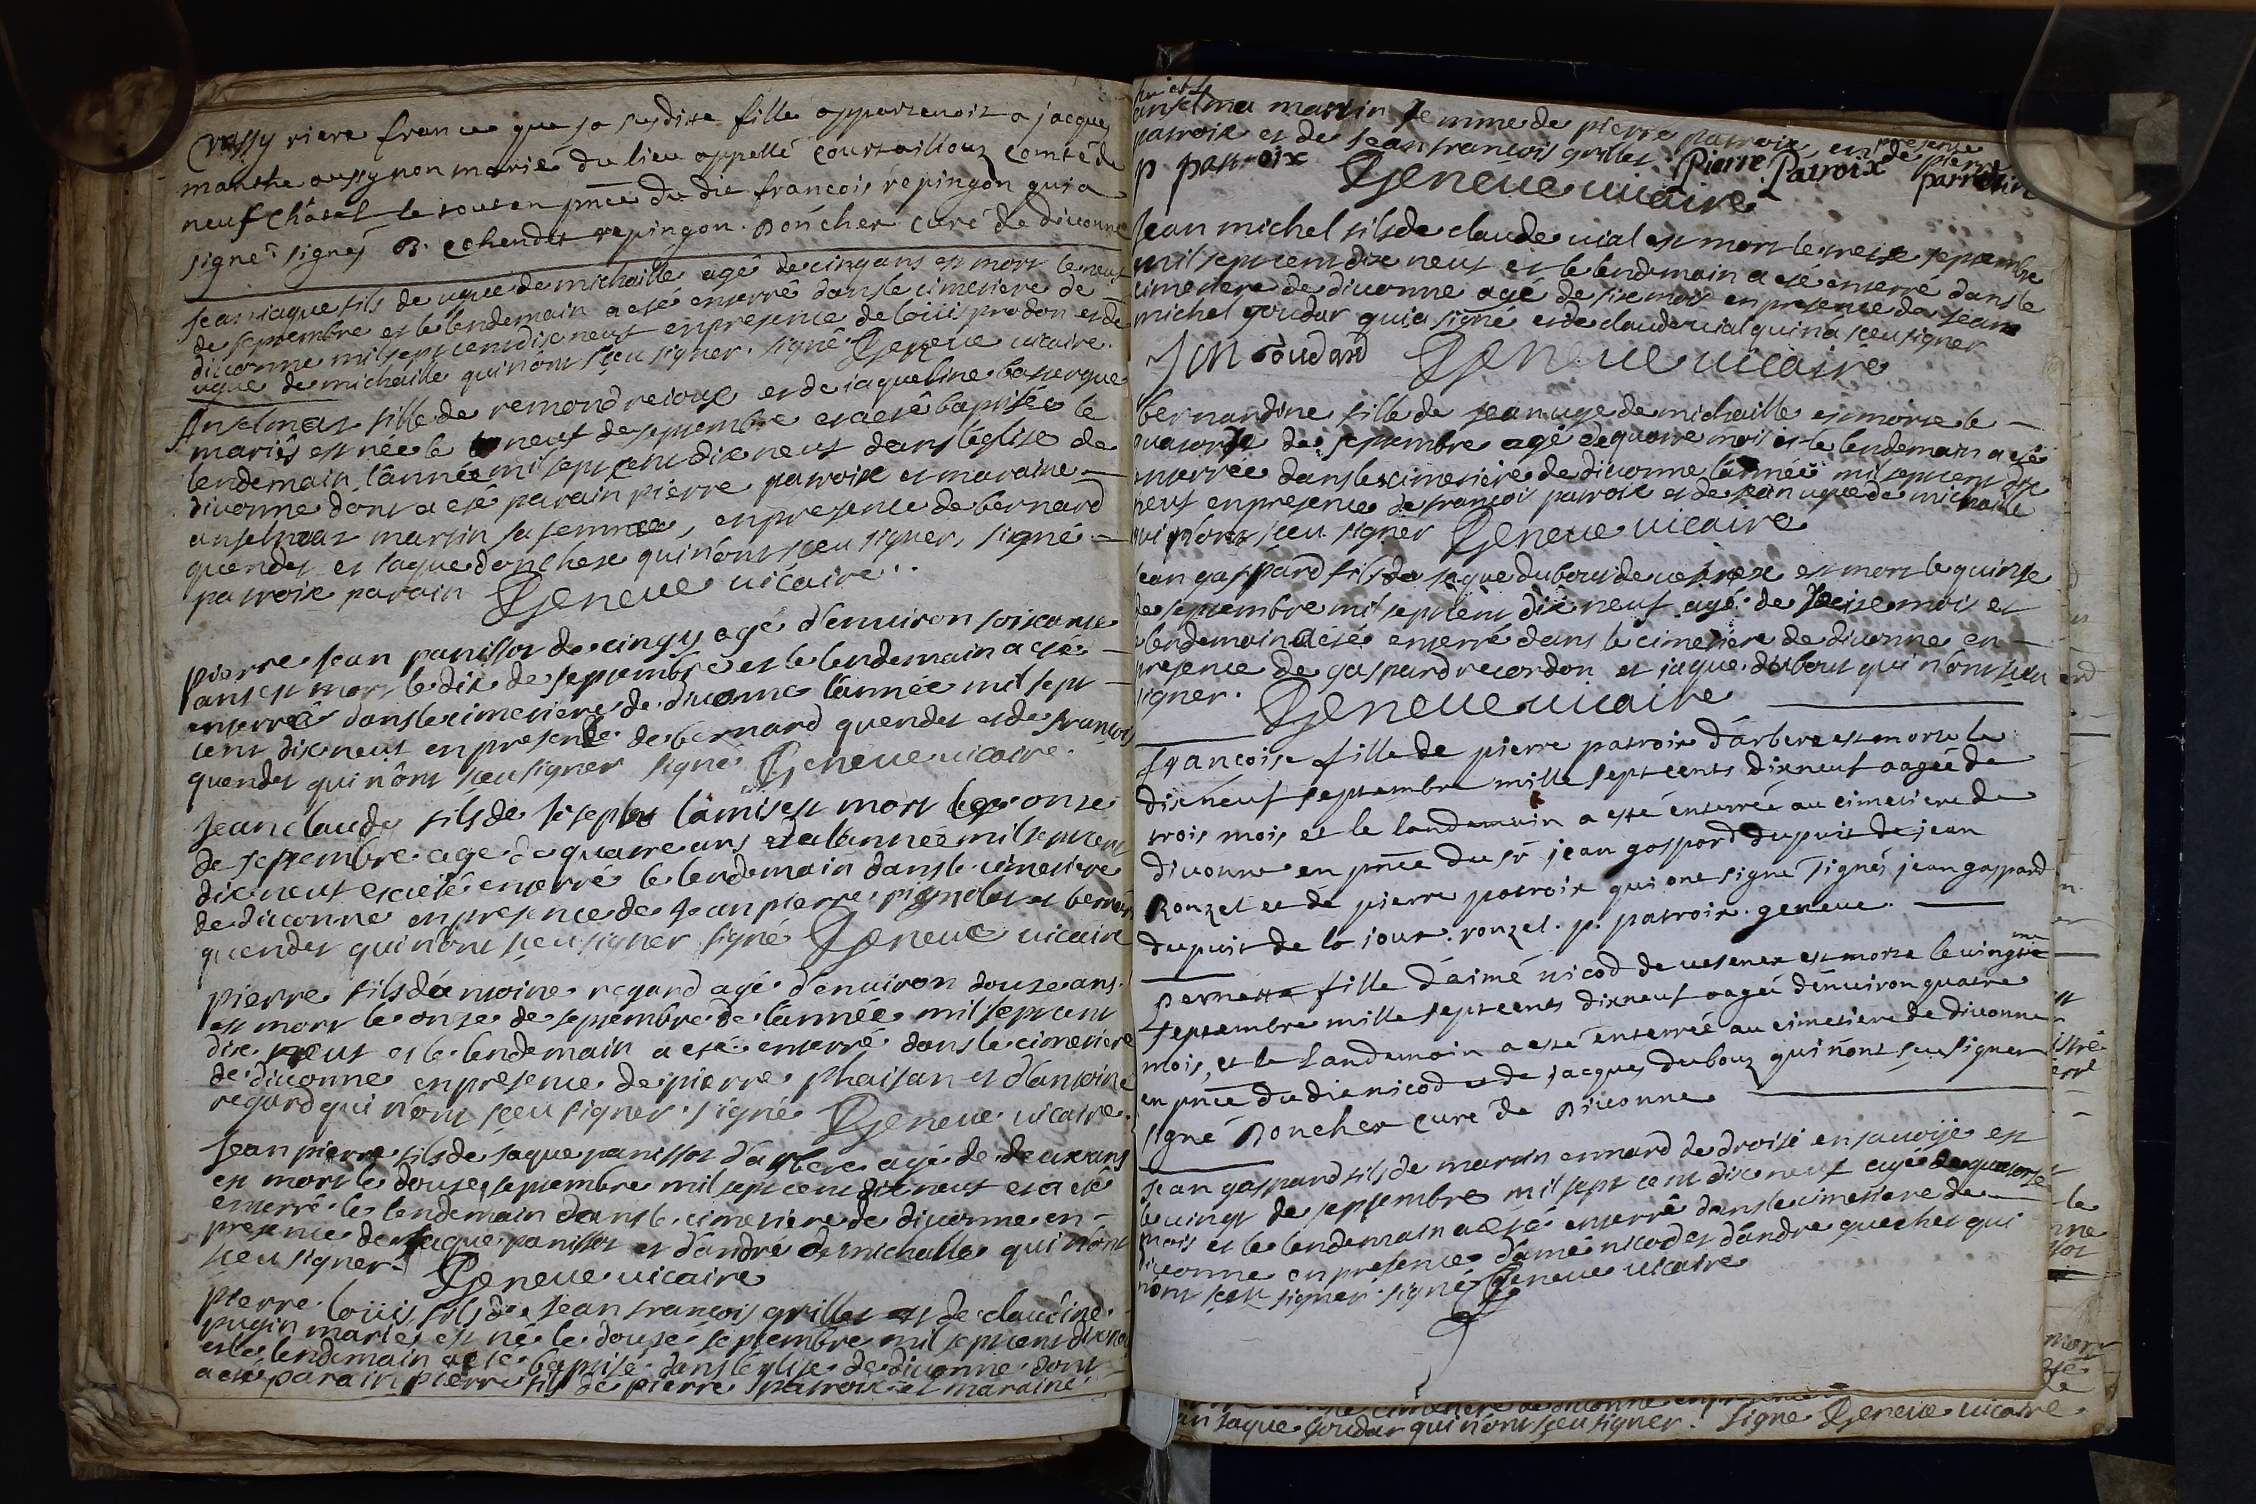 Crassy riere france que sa susditte fille appartenoit a jacques
manthe aussy non marié du lieu appellé Courtaillouz Comté de
neufChâtel le tout en pñce du dit françois repingon qui a
signé signéz B. Cohendet repingon. Doncher curé de divonne
Jean jaque fils de ugue de michaille agé de cinq ans est mort le neuf
de septembre et le lendemain a esté enterré dans le cimetiere de
divonne mil sept cent dix neuf en presence de loüis prodon et de
ugue de michaille qui n'ont sçeu signer. signé Geneve vicaire.
Anselmaz fille de remond reioux et de jaqueline
mariés est née le neuf de septembre et a esté baptisée le
lendemain l'année mil sept cent dix neuf dans l'église de
divonne dont a esté parain pierre patroix et maraine
anselmaz martin sa femme, en presence de bernard
quendet et jaque donchex qui n'ont sceu signer, signé
patroix parain Geneve vicaire.
pierre Jean panissot de cingy agé d'environ soixante
ans est mort le dix de septembre et le lendemain a esté
enterré dans le cimetiere de divonne l'année mil sept
cent dix neuf en presence de bernard quendet et de françois
quendet qui n'ont sceu signer signé Geneve vicaire.
Jean claude fils de joseph lamis est mort le onze
de septembre agé de quatre ans de l'année mil sept cent
dix neuf et a esté enterré le lendemain dans le cimetiere
de divonne en presence de Jean pierre pignolet et bernard
quendet qui n'ont sçeu signer signé Geneve vicaire
pierre fils d'antoine regard agé d'environ douze ans
est mort le onze de septembre de l'année mil sept cent
dix neuf et le lendemain a esté enterré dans le cimetiere
de divonne en presence de pierre phaisan et d'antoine
regard qui n'ont sceu signer. signé Geneve vicaire.
Jean pierre fils de jaque panissot d'arbere agé de deux ans
est mort le douze septembre mil sept cent dix neuf et a esté
enterré le lendemain dans le cimetiere de divonne en
presence de jaque panissot et d'andré demichaille qui n'ont
sceu signer. Geneve vicaire
pierre loüis fils de Jean françois grillet et de claudine
pugin mariés est né le douze septembre mil sept cent dix neuf
et le lendemain a esté baptisé dans l'église de divonne dont
a esté parain pierre fils de pierre patroix et maraine
anselma martin femme de pierre patroix, en presence de pierre
patroix et de Jean françois grillet. Pierre Patroix parrain
p patroix Geneve vicaire
Jean michel fils de claude vial est mort le treize septembre
mil sept cent dix neuf et le lendemain a esté enterré dans le
cimetiere de divonne agé de six mois en presence de Jean
michel goudar qui a signé et de claude vial qui n'a sceu signer
J m Goudard Geneve vicaire
bernardine fille de Jean uge de michaille est morte le
quatorze de septembre agé de quatre mois et le lendemain a esté
enterrée dans le cimetiere de divonne l'année mil sept cent dix
neuf en presence de françois patroix et de Jean ugue de michaille
qui n'ont sceu signer Geneve vicaire
Jean gaspard fils de jaque dubout de vesenex est mort le quinze
de septembre mil sept cent dix neuf agé de seize mois et
le lendemain a esté enterré dans le cimetiere de divonne en
presence de gaspard recordon et jaque dubout qui n'ont sceu
signer. Geneve vicaire
françoise fille de pierre patroix d'arbere est morte le
dixneuf septembre mille sept cents dixneuf aagée de
trois mois et le landemain a esté enterrée au cimetiere de
divonne en pñce du sr jean gaspard dupuit de jean
Ronzel et de pierre patroix qui ont signé Signés jean gaspard
dupuit de la jour. ronzel. p. patroix. geneve.
pernette fille d'aimé nicod de vesenex est morte le vingtieme
septembre mille sept cents dixneuf aagée d'environ quatre
mois, et le landemain a esté enterrée au cimetiere de divonne
en pñce du dit nicod et de jacques dubouz qui n'ont sçu signer
signé Doncher curé de Divonne
Jean gaspard fils de martin ennard de droisi en savoije est
le vingt de septembre mil sept cent dix neuf agé de quatorze
mois et le lendemain a esté enterré dans le cimetiere de
divonne en presence d'amé nicod et d'andré quechet qui
n'ont sceu signer. signé Geneve vicaire
le cimetiere de divonne en presence
jaque Goudar qui n'ont sçeu signer. signé Geneve vicaire